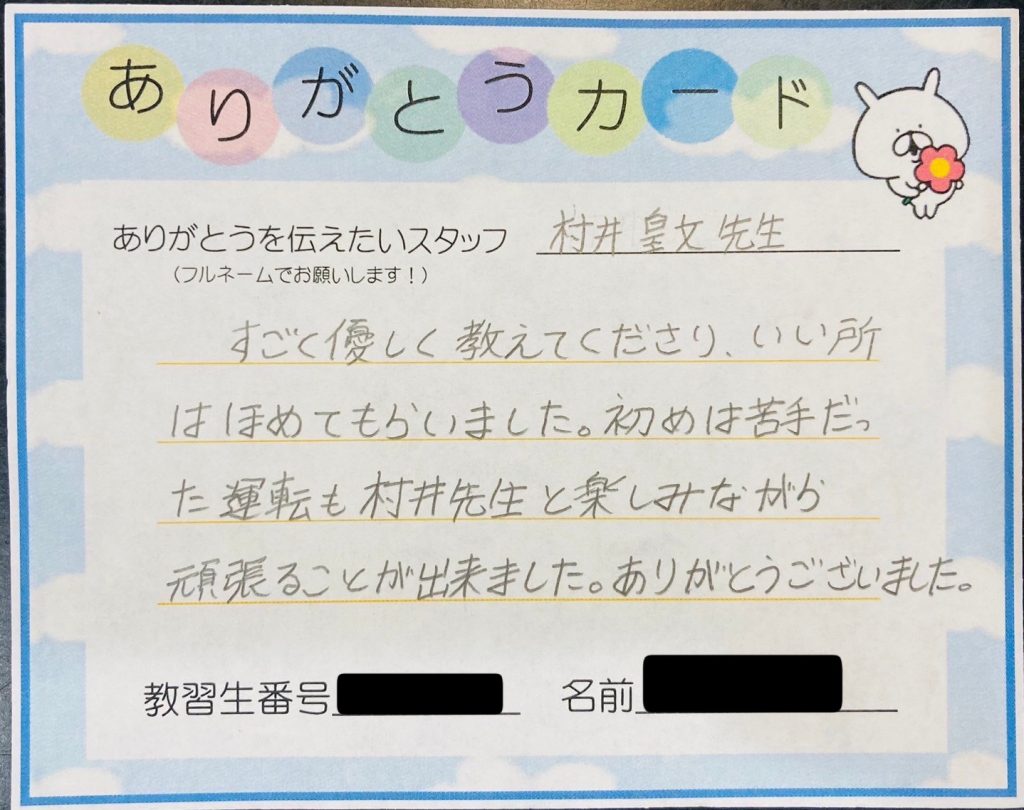 ありがとうカード
ありがとうを伝えたいスタッフ 村井 皇文 先生
(フルネームでお願いします!)
すごく優しく教えてくださり、いい所
はほめてもらいました。初めは苦手だっ
た運転も村井先生と楽しみながら
頑張ることが出来ました。ありがとうございました。
教習生番号 名前